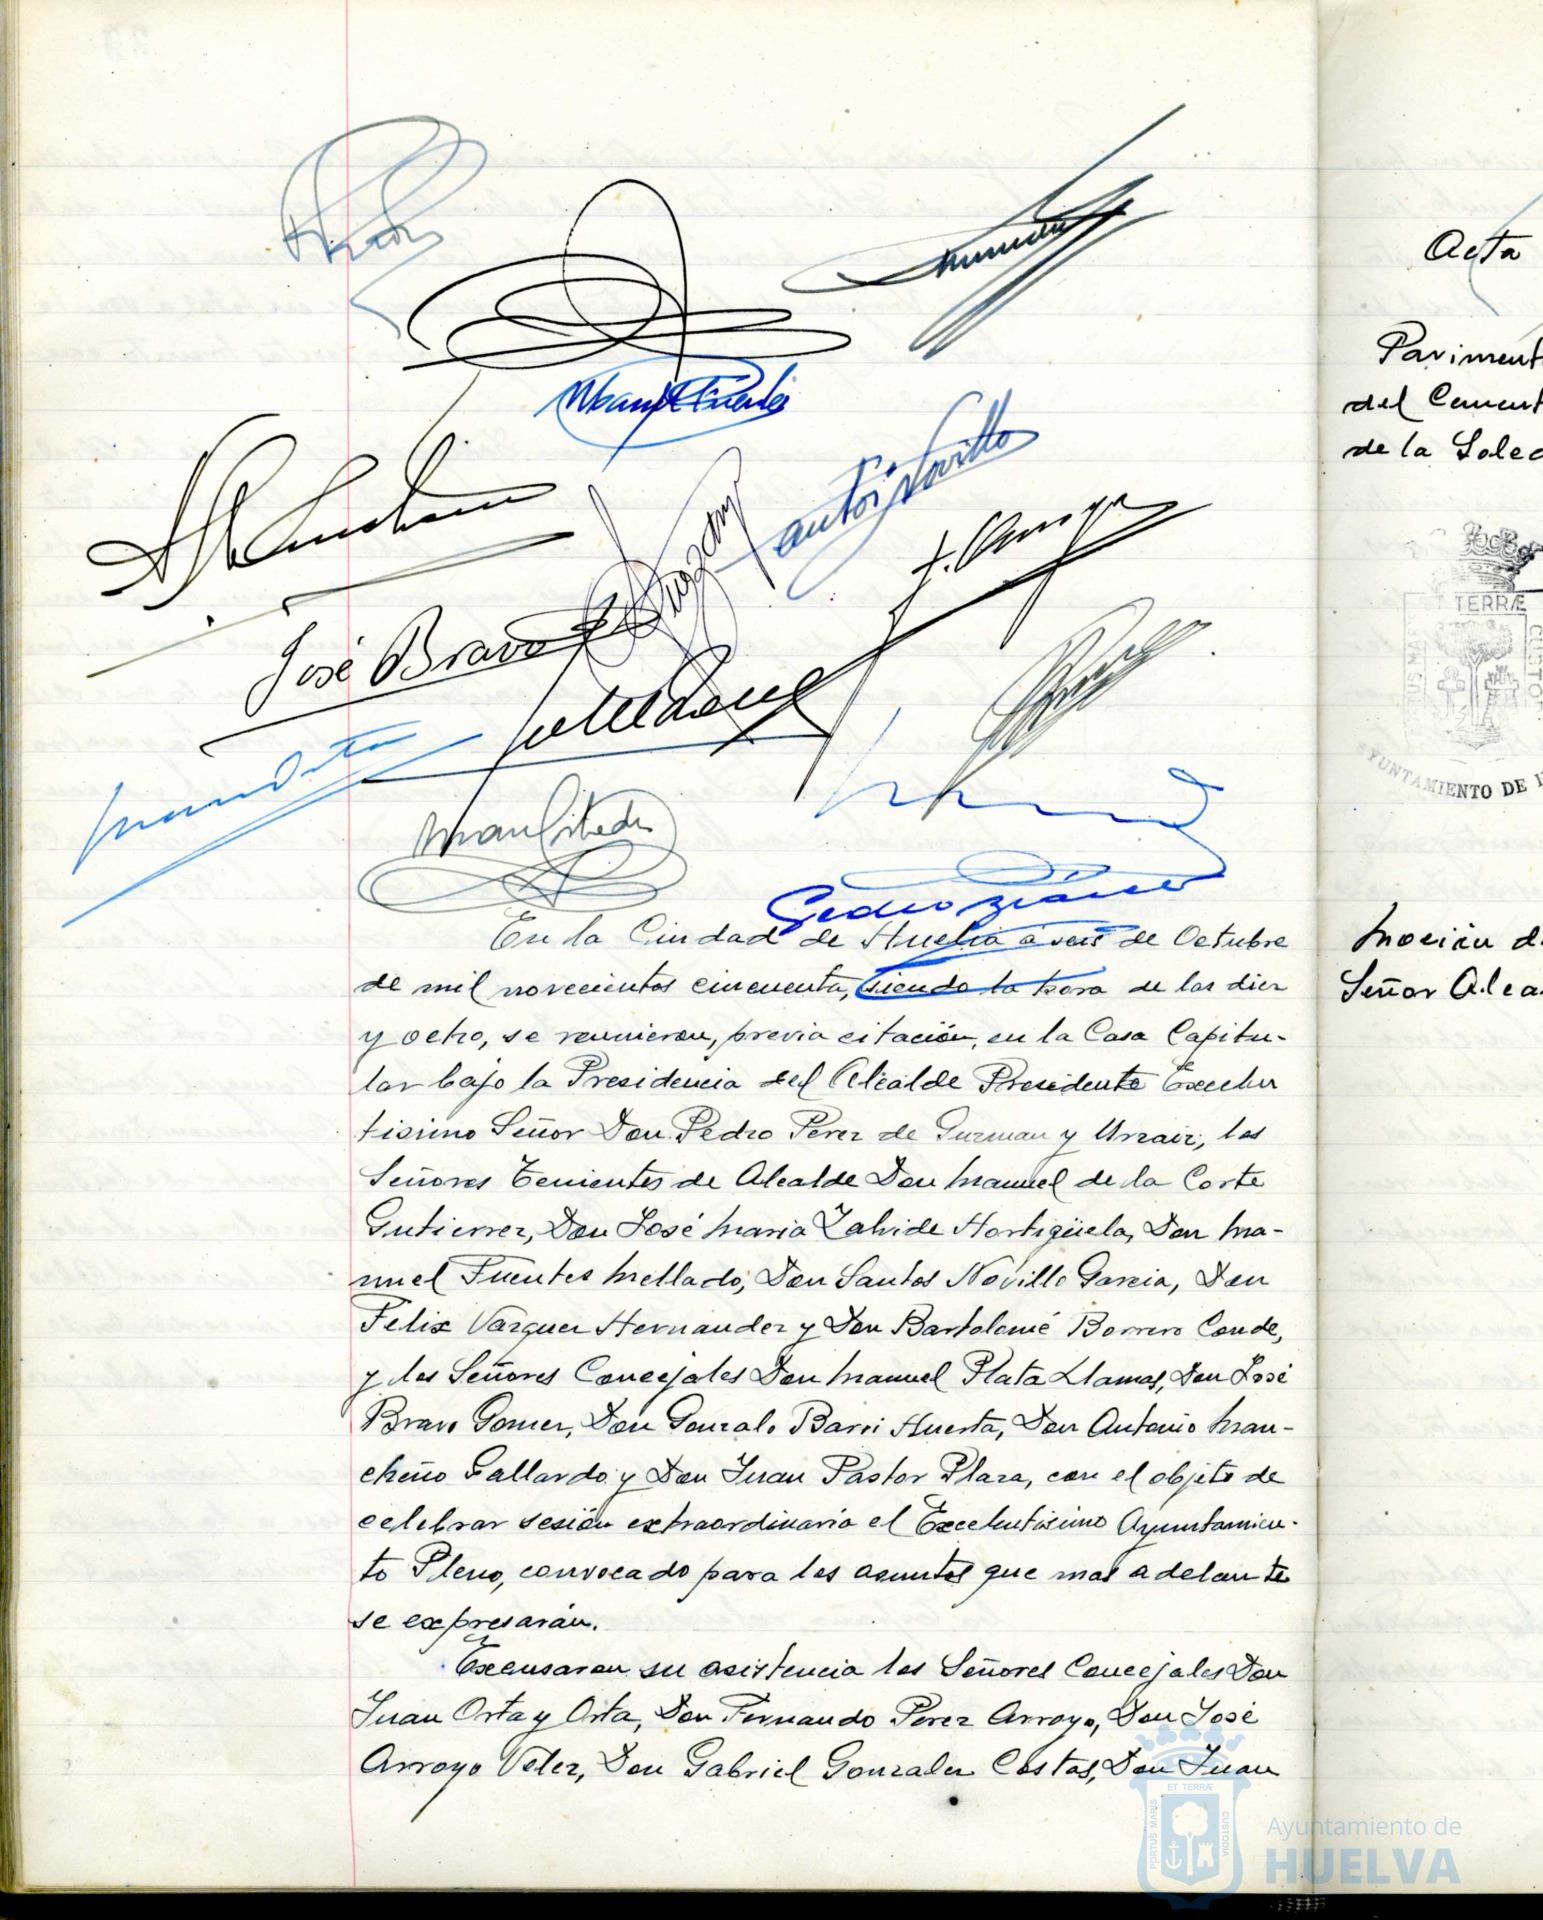 José Bravo
En la Ciudad de Huelva a seis de Octubre
de mil novecientos cincuenta, siendo la hora de las diez
y ocho, se reunieron, previa citación, en la Casa Capitu-
lar bajo la Presidencia del Alcalde Presidente Excelen
tisimo Señor Don Pedro Perez de Guzman y Urzaiz, los
Señores Tenientes de Alcalde Don Manuel de la Corte
Gutierrez, Don José Maria Zalvide Hortigüela, Don Ma-
nuel Fuentes Mellado, Don Santos Novillo Garcia, Don
Felix Vazquez Hernandez y Don Bartolomé Borrero Conde,
y los Señores Concejales Don Manuel Plata Llamas, Don José
Bravo Gomez, Don Gonzalo Barri Huerta, Don Antonio Man-
cheño Gallardo y Don Juan Pastor Plaza, con el objeto de
celebrar sesión extraordinaria el Excelentisimo Ayuntamien-
to Pleno, convocado para los asuntos que mas adelante
se expresarán.
Excusaron su asistencia los Señores Concejales Don
Juan Orta y Orta, Don Fernando Perez Arroyo, Don José
Arroyo Velez, Don Gabriel Gonzalez Costas, Don Juan
Acta
Paviment
del Cement
de la Soled
TERRÆ
AYUNTAMIENTO DE
Moción d
Señor Alca
ET TERRÆ
PORTUS MARIS
CUSTODIA
Ayuntamiento de
HUELVA